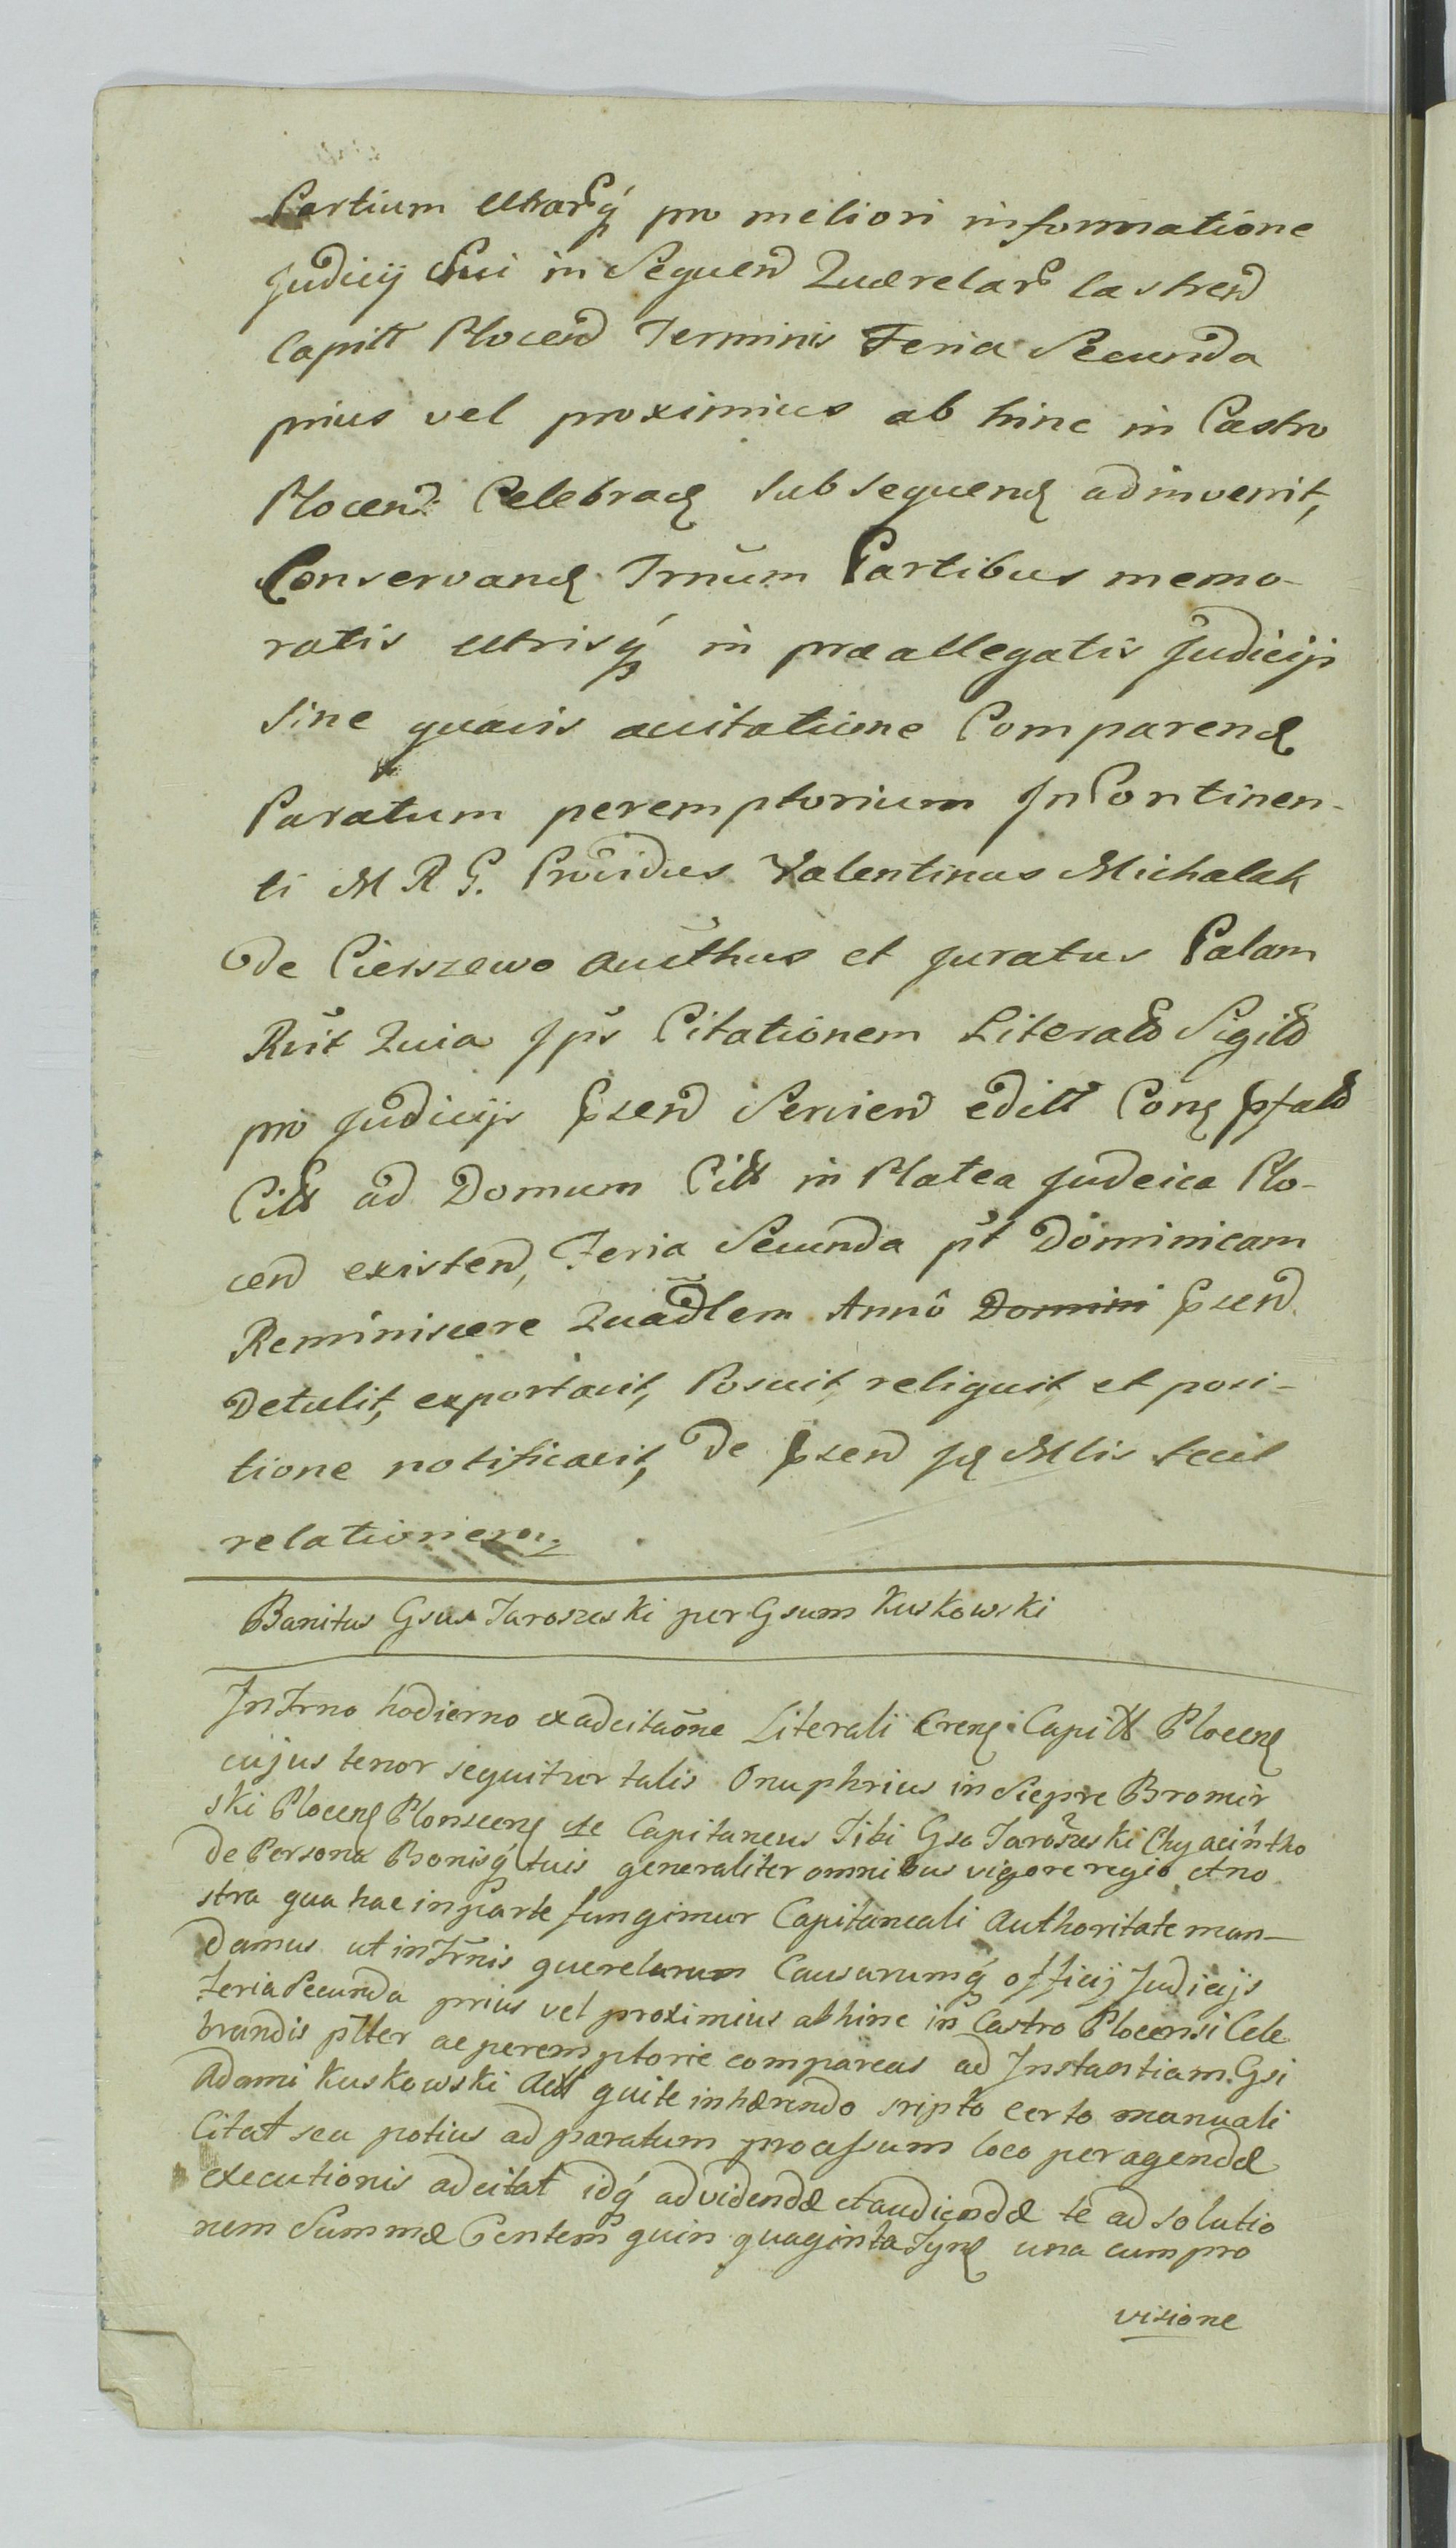 Partium utrarq́ pro meliori informatione
Judicij Sui in Sequen Quærelar Castren
Capitt Plocen Terminis Feria Secunda
prius vel proximius ab hinc in Castro
Plocen: Celebran subsequen adinvenit,
Conservan Trnum Partibus memo-
ratis utrisq́ in præallegatis Judicijs
sine quavis acitatione Comparen
Paratum peremptorium In Continen-
ti M R G. Providus Valentinus Michalak
de Cierszewo authus et juratus Palam
Rvit Quia Ips Citationem Literal Sigil
pro Judicijs psen Servien editt Con psal
Citt ad Domum Citt in Platea Judeica Plo-
cen existen, Feria Secunda pt Dominicam
Reminiscere Quadlem Anno Domini psen
Detulit, exportavit, Posuit, reliquit et posi-
tione notificavit, de psen Jd Mlis fecit
relationem.
Banitus Gsus Jaroszeski per Gsum Kuskowski
In Trno hodierno ex adcitaõne Literali Cren Capitt Plocen
cujus tenor sequitur talis Onuphrius in Siepre Bromir
ski Plocen Plonscen et Capitaneus Tibi Gso Jaroszeski Chyacintho
de Persona Bonisq́ tuis generaliter omnibus vigore regio et no
stra qua hac in parte fungimur Capitaneali Authoritate man-
damus ut in Trnis querelarum Causarumq́ officij Judicijs
feria Secunda prius vel proximius abhinc in Castro Plocensi Cele
brandis plter ac peremptorie compareas ad Instantiam Gsi
Adami Kuskowski Actt qui te inhærendo sripto certo manuali
Citat seu potius ad paratum processum loco peragendæ
executionis adcitat idq́ ad videndæ et audiendæ te ad solutio
nem Summæ Centem quinquaginta Tyn una cum pro
visione